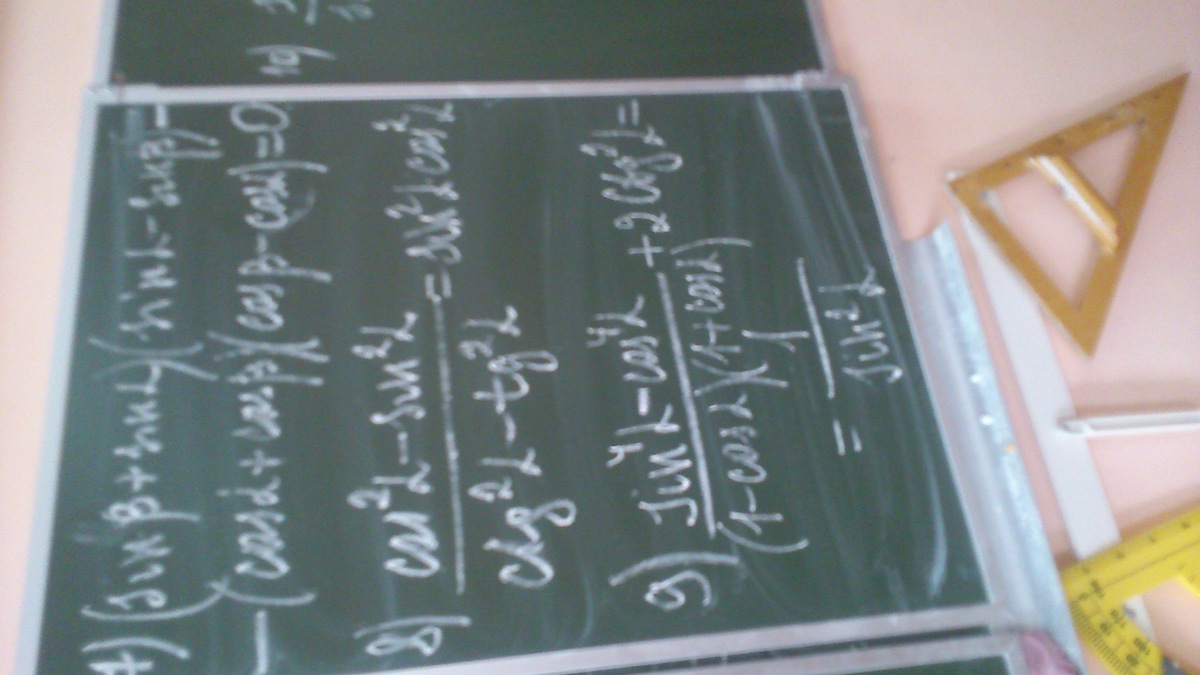 7) (sin β + sin α)(sin α - sin β) -
- (cos α + cos β)(cos β - cos α) = 0
8) cos²α - sin²α / ctg²α - tg²α = sin²α cos²α
9) sin⁴α - cos⁴α / (1 - cos α)(1 + cos α) + 2 ctg²α =
= 1 / sin²α
10)